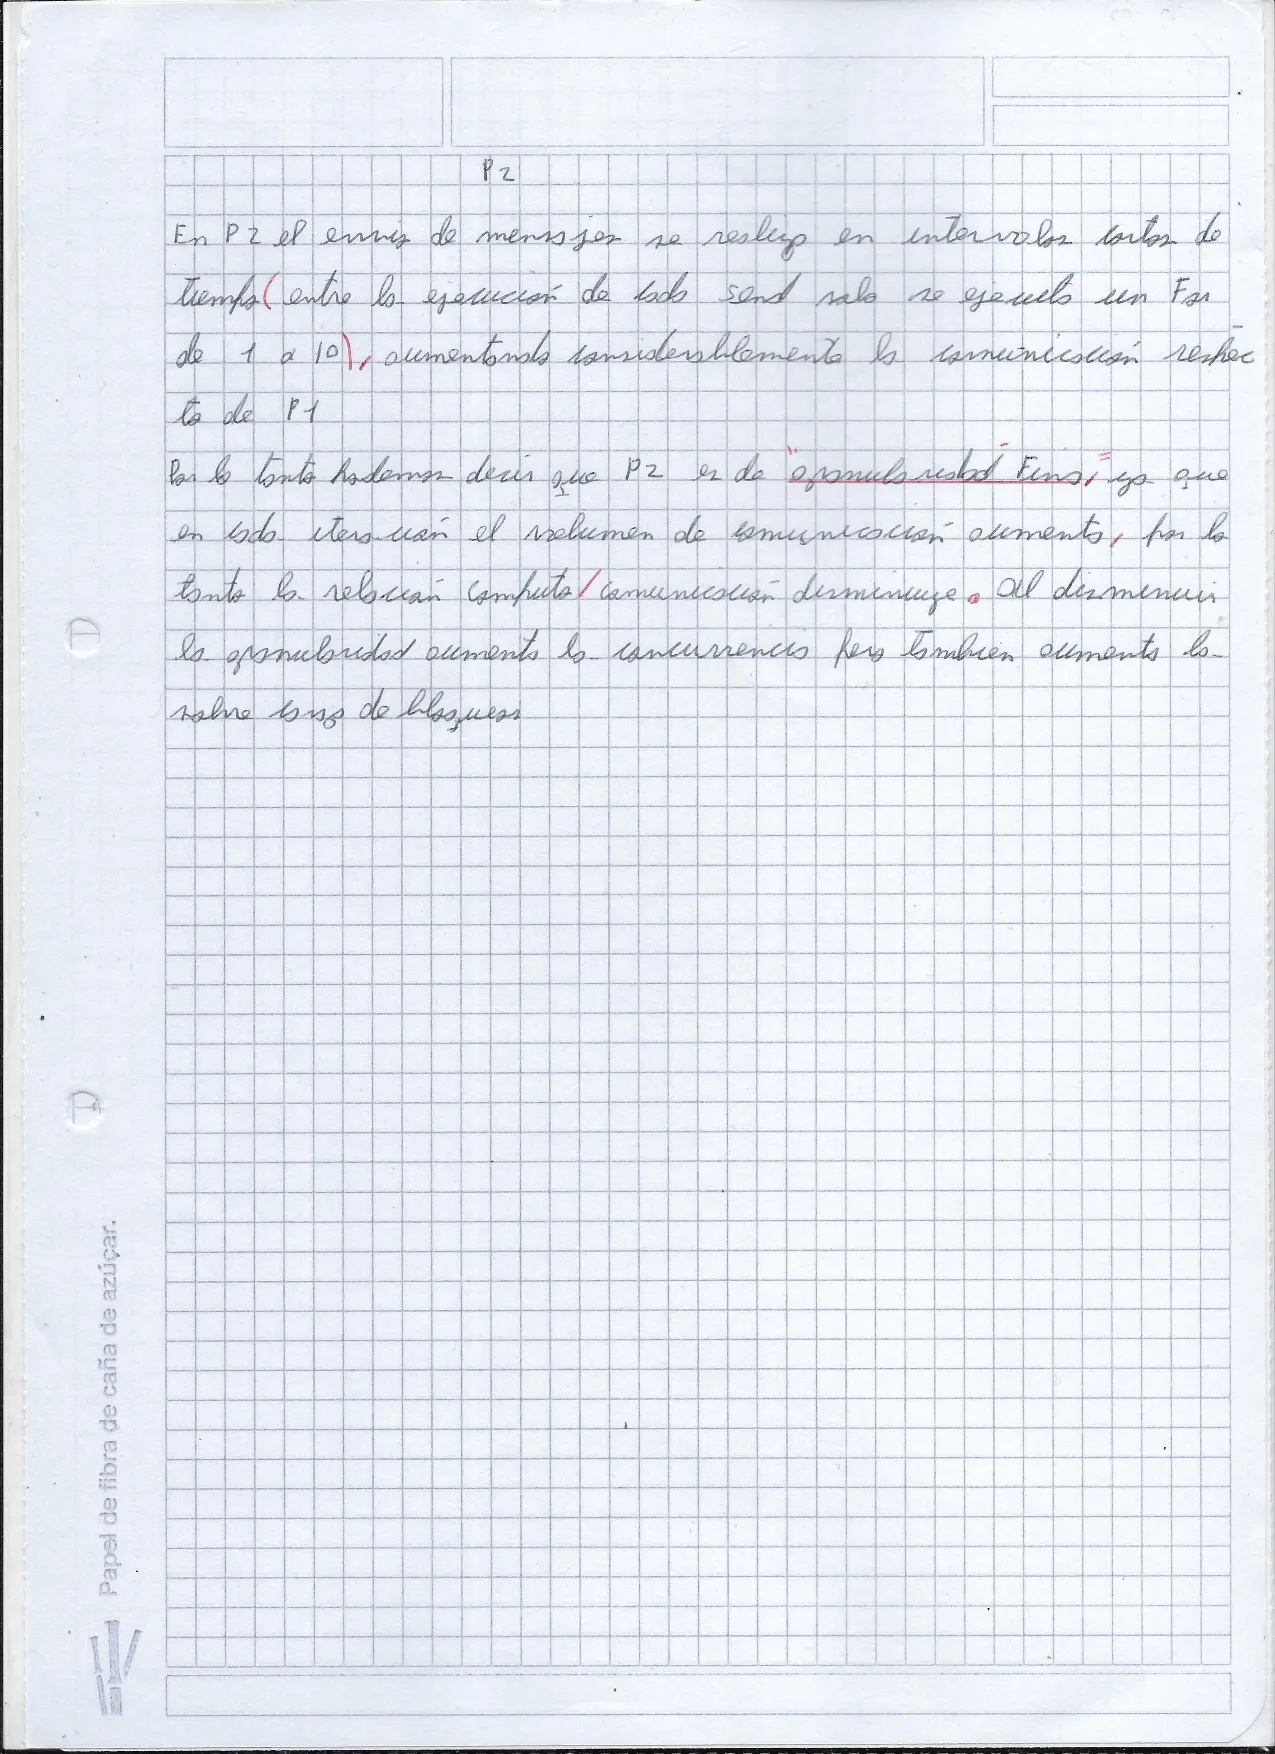 P2
En P2 el envio de mensajes se realiza en intervalos cortos de
tiempo (entre la ejecución de cada send solo se ejecuta un For
de 1 a 10), aumentando considerablemente la comunicación respec
to de P1
Por lo tanto podemos decir que P2 es de "granularidad Fina", ya que
en cada iteración el volumen de comunicación aumenta, por lo
tanto la relación computo/comunicación disminuye. Al disminuir
la granularidad aumenta la concurrencia pero tambien aumenta la
sobre carga de bloqueos
Papel de fibra de caña de azúcar.